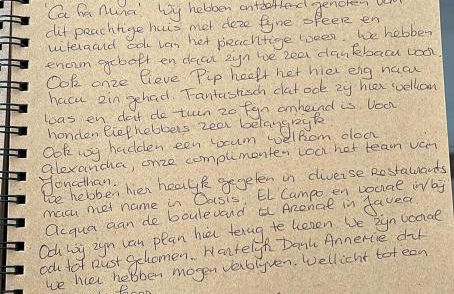 "Ca Na Nuna" Wij hebben ontzettend genoten van
dit prachtige huis met deze fijne sfeer en
uiteraard ook van het prachtige weer. We hebben
enorm geboft en daar zijn we zeer dankbaar voor.
Ook onze lieve Pip heeft het hier erg naar
haar zin gehad. Fantastisch dat ook zij hier welkom
was en dat de tuin zo fijn omheind is. Voor
hondenliefhebbers zeer belangrijk
Ook wij hadden een warm welkom door
Alexandra, onze complimenten voor het team van
Jonathan.
We hebben hier heerlijk gegeten in diverse Restaurants
maar met name in Oasis, EL Campo en vooral in/bij
Acqua aan de boulevard El Arenal in Javea.
Ook wij zijn van plan hier terug te keren. We zijn vooral
ook tot rust gekomen. Hartelijk Dank Annettie dat
we hier hebben mogen verblijven. Wellicht tot een